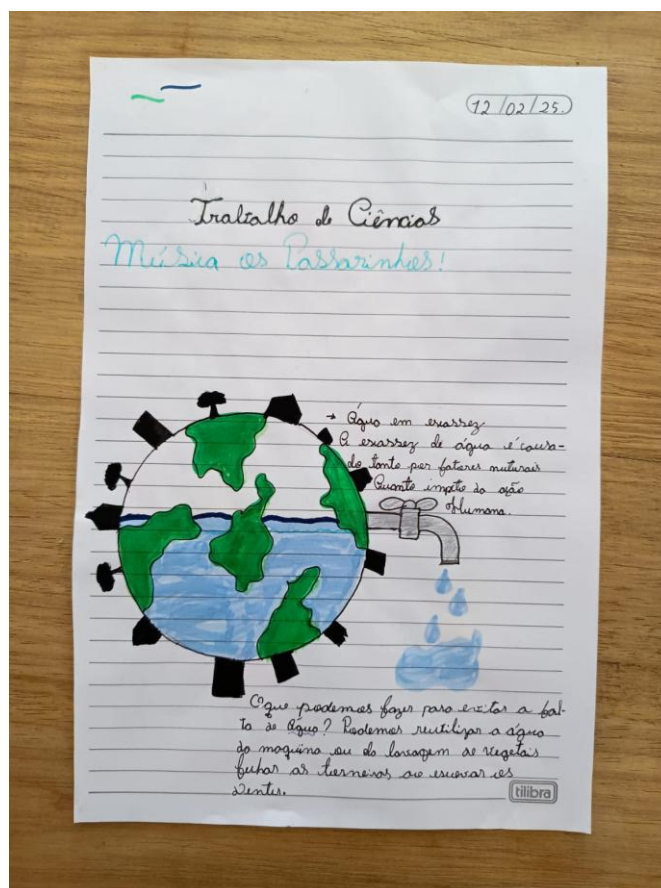 12/02/25.
Trabalho de Ciências
Música os Passarinhos!
→ Água em escassez
A escassez de água é causa-
da tanto por fatores naturais
Quanto impcto da ação
Humana.
O que podemos fazer para evitar a fal-
ta de água? Podemos reutilizar a água
da maquina ou da lavagem de vegetais
fechar as torneiras ao escovar os
Dentes.
tilibra